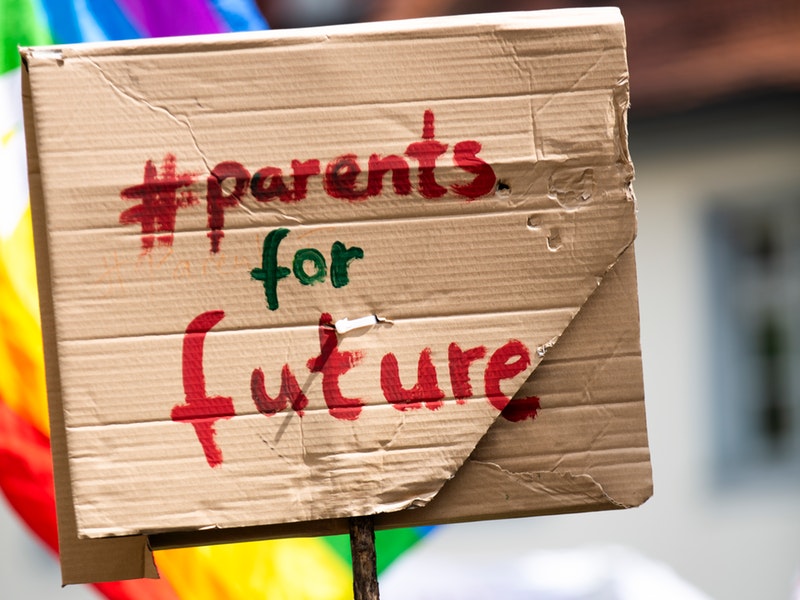 #parents
for
future